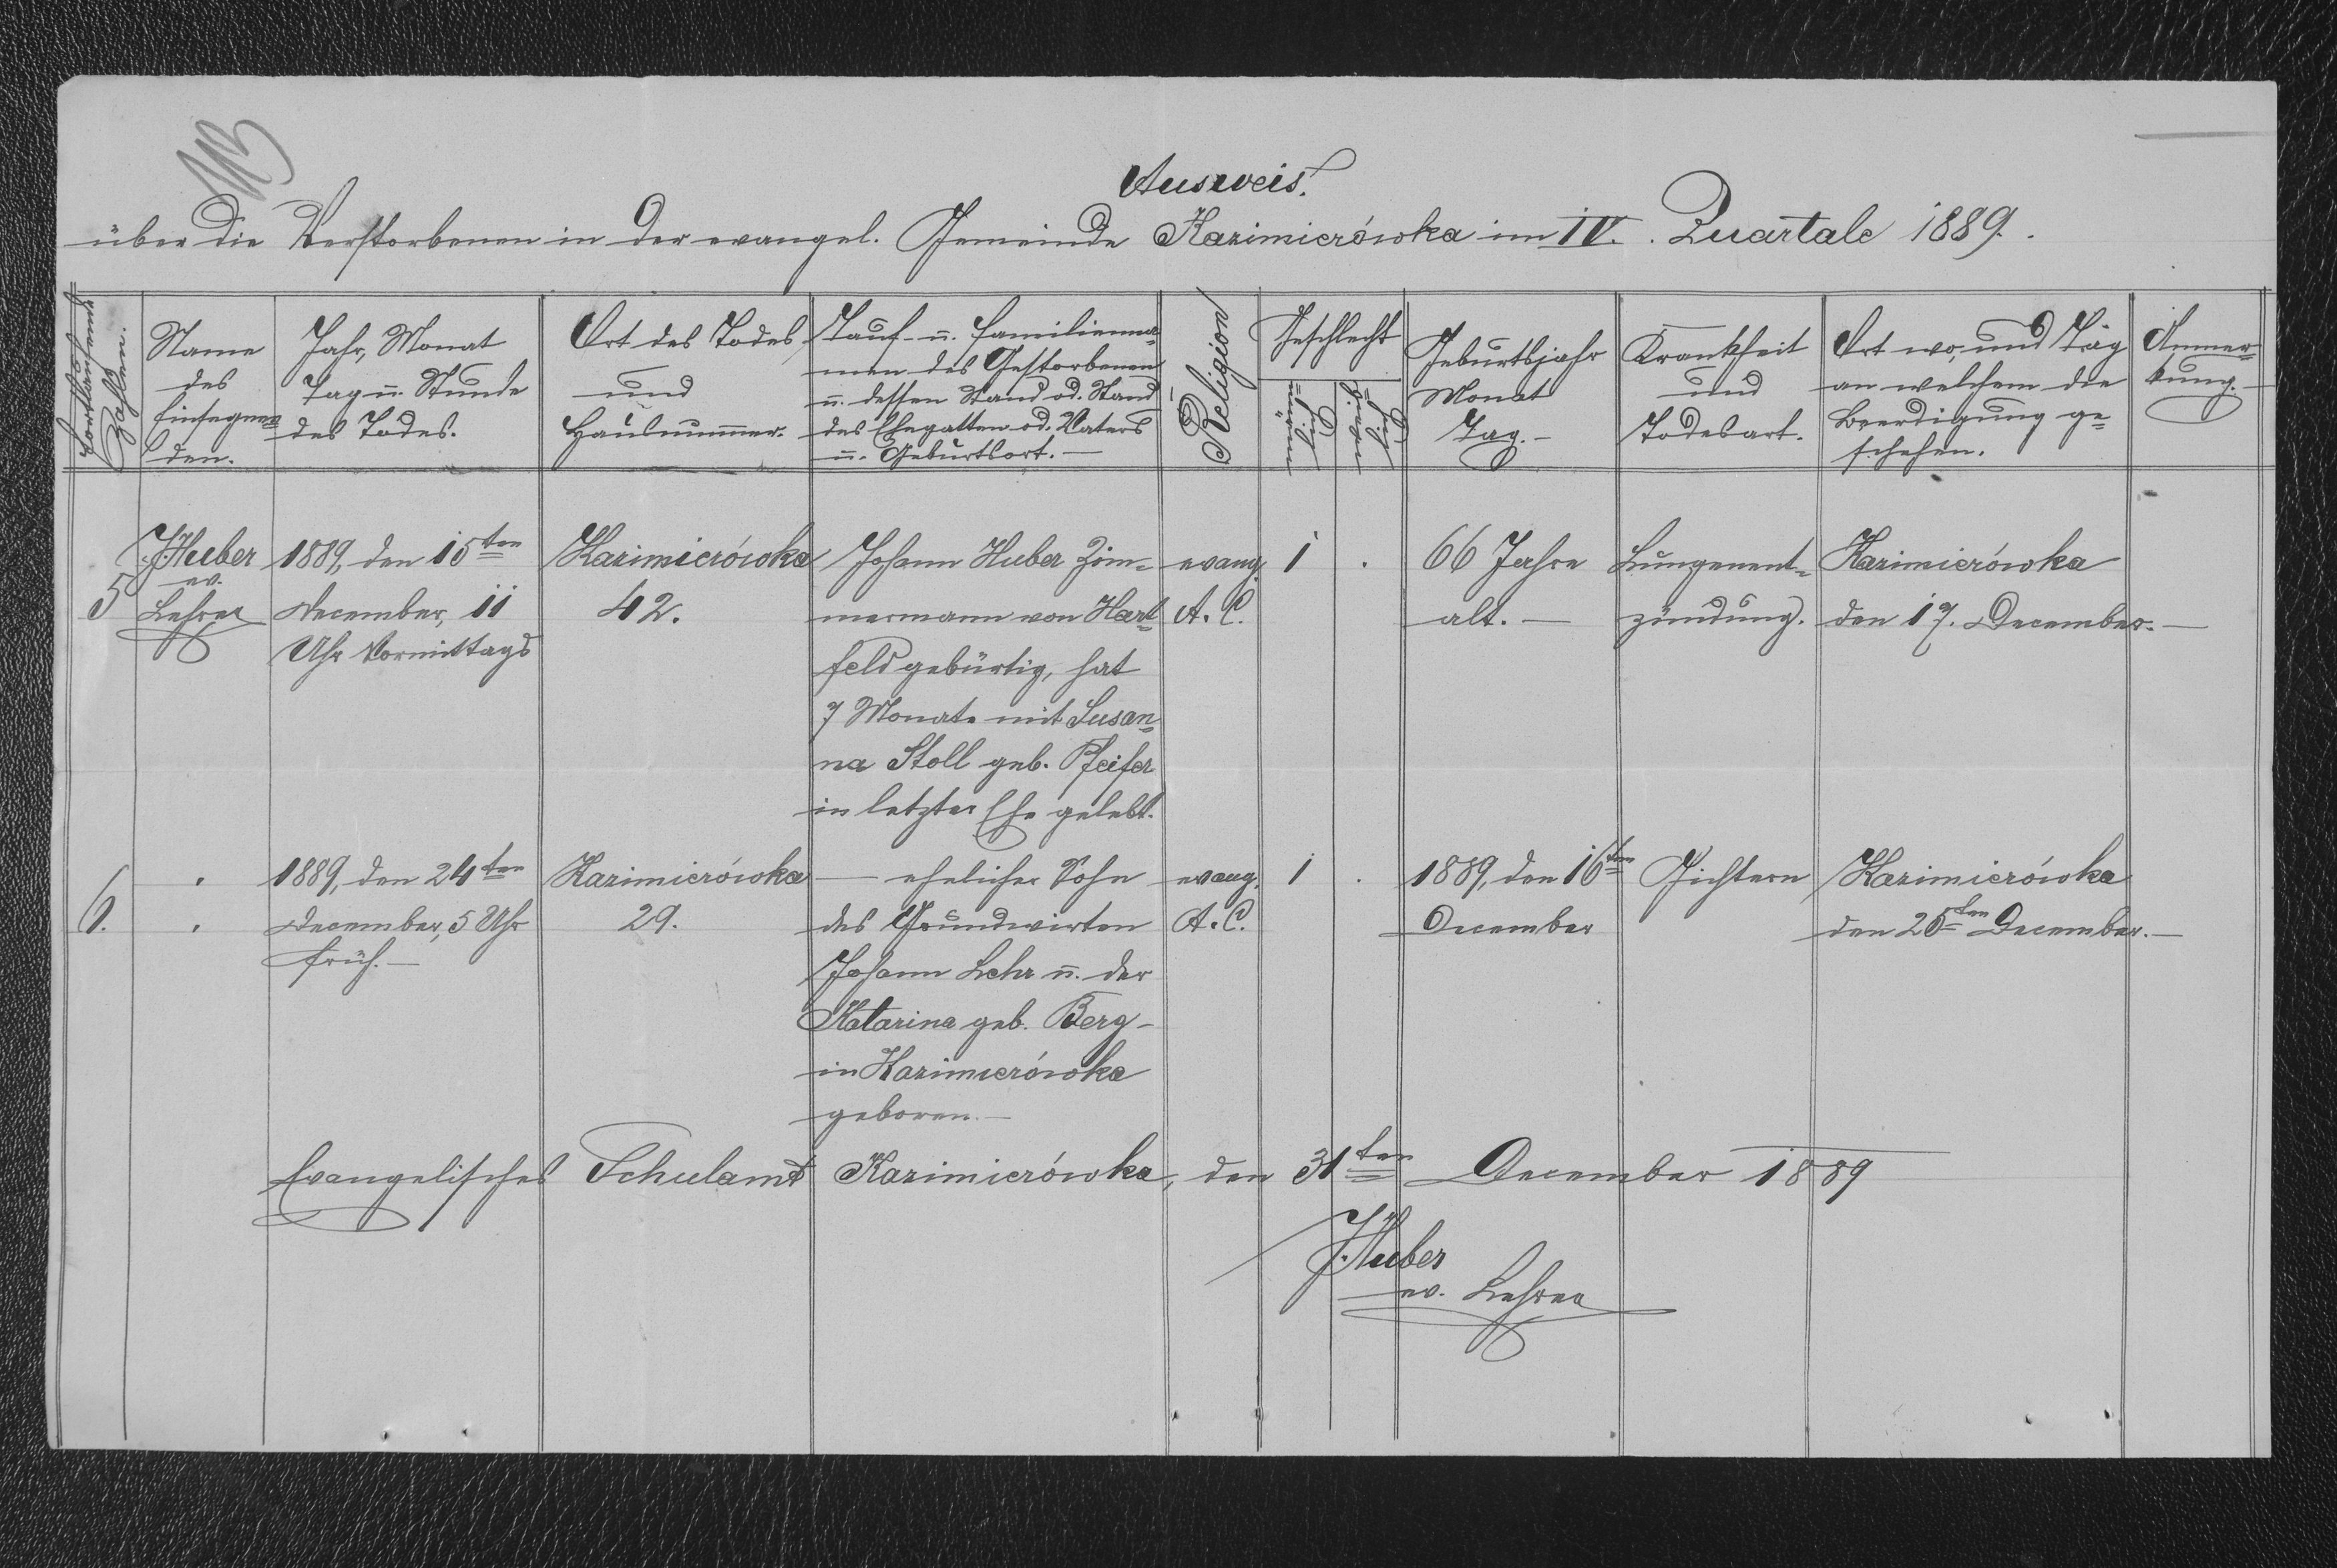 Ausweis.
über die Verstorbenen in der evangel. Gemeinde Kazimierówka im IV. Quartale 1889.
Fortlaufende
Zahlen.
Name
des
Einsegnen=
den.
Jahr, Monat
Tag u. Stunde
des Todes.
Ort des Todes
und
Hausnummer.
Tauf- u. Familienna=
men des Gestorbenen
u. dessen Stand od. Stand
des Ehegatten od. Vaters
u. Geburtsort. —
Religion
Geschlecht
män=
lich
weib=
lich
Geburtsjahr
Monat
Tag. —
Krankheit
und
Todesart.
Ort wo, und Tag
an welchem die
Beerdigung ge=
schehen.
Anmer=
kung. —
5
J. Huber
ev.
Lehrer
1889, den 15ten
December, 11
Uhr Vormittags
Kazimierówka
42.
Johann Huber Zim=
mermann von Hart=
feld gebürtig, hat
7 Monate mit Susan=
na Stoll geb. Pfeifer
in letzter Ehe gelebt.
evang.
A. C.
1 .
66 Jahre
alt. —
Lungenent=
zündung.
Kazimierówka
den 17. December. —
6.
1889, den 24ten
December, 5 Uhr
früh. —
Kazimierówka
29.
— ehelicher Sohn
des Grundwirten
Johann Lehr u. der
Katarina geb. Berg -
in Kazimierówka
geboren. —
evang.
A. C.
1 .
1889, den 16ten
December
Gichtern
Kazimierówka
den 25ten December. —
Evangelisches Schulamt Kazimierówka, den 31ten December 1889
J. Huber
ev. Lehrer